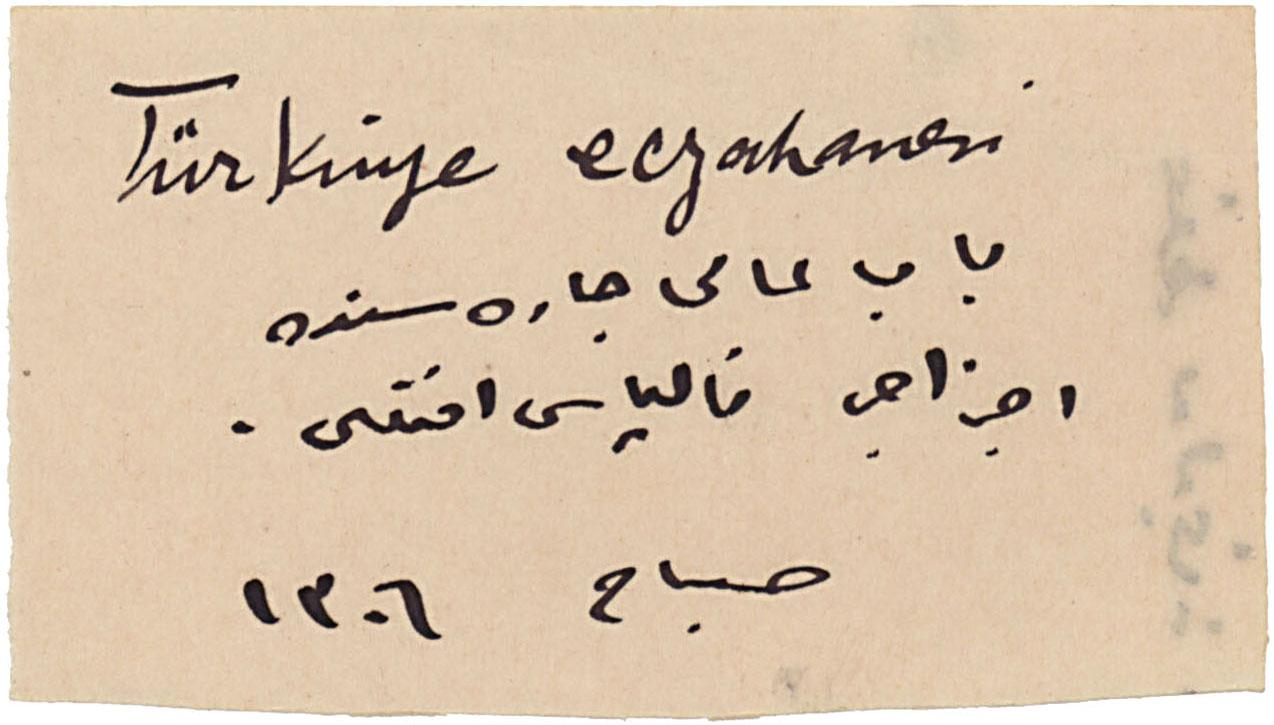 Türkiye eczahanesi
باب عالی جاده سنده
اجزاجی فالیاس افندی .
صباح ١٣٠٦